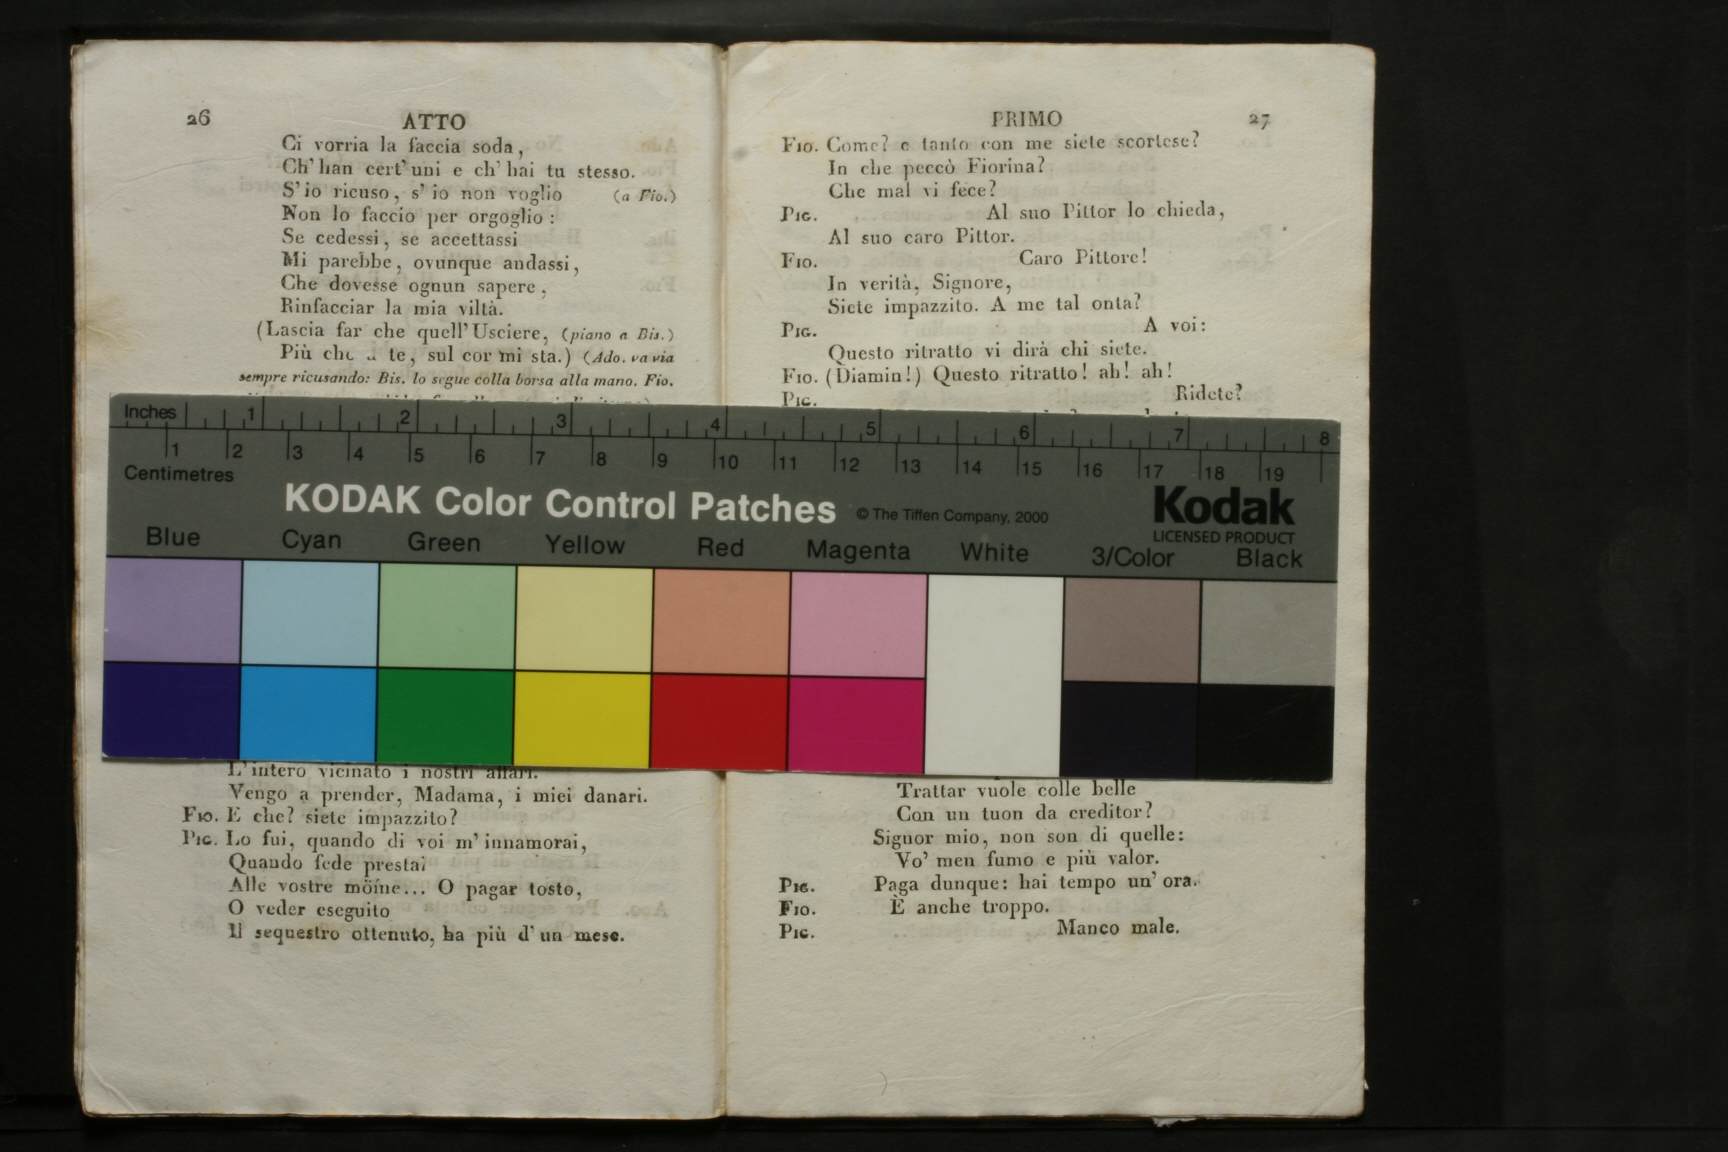 26
ATTO
Ci vorria la faccia soda,
Ch' han cert' uni e ch' hai tu stesso.
S' io ricuso, s' io non voglio (a Fio.)
Non lo faccio per orgoglio:
Se cedessi, se accettassi
Mi parebbe, ovunque andassi,
Che dovesse ognun sapere,
Rinfacciar la mia viltà.
(Lascia far che quell' Usciere, (piano a Bis.)
Più che a te, sul cor mi sta.) (Ado. va via
sempre ricusando: Bis. lo segue colla borsa alla mano. Fio.
L' intero vicinato i nostri affari.
Vengo a prender, Madama, i miei danari.
Fio. E che? siete impazzito?
Pig. Lo fui, quando di voi m' innamorai,
Quando fede prestai
Alle vostre möine... O pagar tosto,
O veder eseguito
Il sequestro ottenuto, ha più d' un mese.
PRIMO
27
Fio. Come? e tanto con me siete scortese?
In che peccò Fiorina?
Che mal vi fece?
Pig. Al suo Pittor lo chieda,
Al suo caro Pittor.
Fio. Caro Pittore!
In verità, Signore,
Siete impazzito. A me tal onta?
Pig. A voi:
Questo ritratto vi dirà chi siete.
Fio. (Diamin!) Questo ritratto! ah! ah!
Pig. Ridete?
Trattar vuole colle belle
Con un tuon da creditor?
Signor mio, non son di quelle:
Vo' men fumo e più valor.
Pig. Paga dunque: hai tempo un' ora.
Fio. È anche troppo.
Pig. Manco male.
Inches 1 2 3 4 5 6 7 8
1 2 3 4 5 6 7 8 9 10 11 12 13 14 15 16 17 18 19
Centimetres
KODAK Color Control Patches © The Tiffen Company, 2000
Kodak
LICENSED PRODUCT
Blue Cyan Green Yellow Red Magenta White 3/Color Black